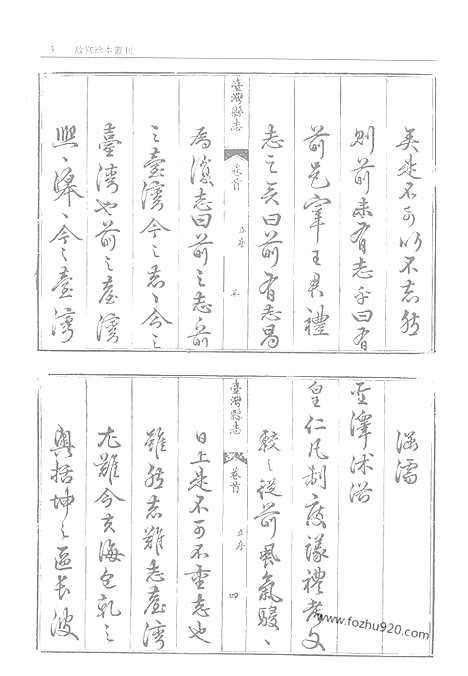 3 故宮珍本叢刊
矣是不可以不志然
則前未有志乎曰有
前邑宰王君禮
志之矣曰前有志曷
臺灣縣志 卷首 序
為復志曰前之志前
之臺灣今之志〻今之
臺灣也前之臺灣
熙〻皞〻今之臺灣
涵濡
聖澤沐浴
皇仁凡制度議禮考文
較之從前風氣駸〻
臺灣縣志 卷首 序 四
日上是不可不重志也
雖然志難志臺灣
尤難今夫海包乾之
奧括坤之區長波
www.fozhu920.com